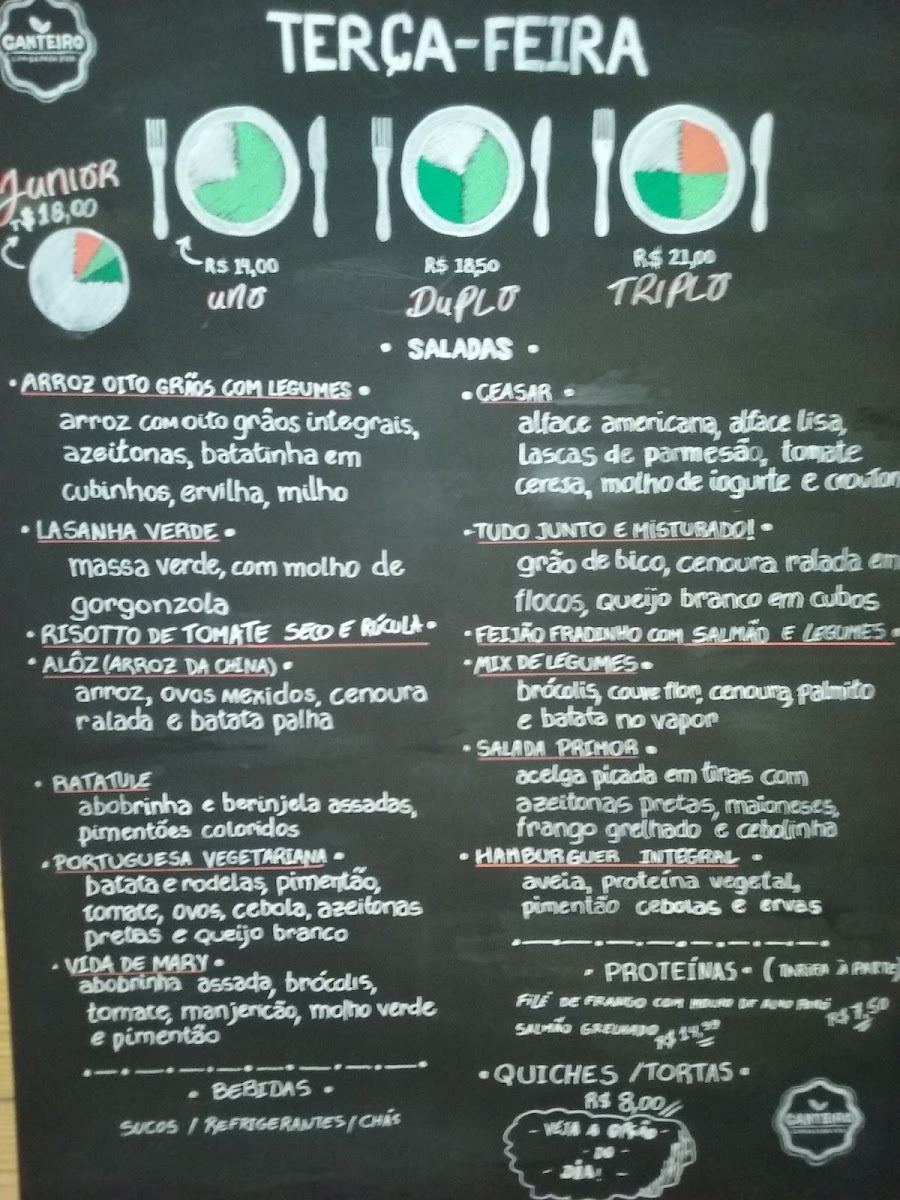 CANTEIRO
TERÇA-FEIRA
JUNIOR
R$18,00
R$ 14,00
UNO
R$ 18,50
DUPLO
R$ 21,00
TRIPLO
• SALADAS •
• ARROZ OITO GRÃOS COM LEGUMES •
arroz com oito grãos integrais,
azeitonas, batatinha em
cubinhos, ervilha, milho
• LASANHA VERDE •
massa verde, com molho de
gorgonzola
• RISOTTO DE TOMATE SECO E RÚCULA •
• ALÔZ (ARROZ DA CHINA) •
arroz, ovos mexidos, cenoura
ralada e batata palha
• RATATULE
abobrinha e berinjela assadas,
pimentões coloridos
• PORTUGUESA VEGETARIANA •
batata e rodelas, pimentão,
tomate, ovos, cebola, azeitonas
pretas e queijo branco
• VIDA DE MARY •
abobrinha assada, brócolis,
tomate, manjericão, molho verde
e pimentão
• BEBIDAS •
SUCOS / REFRIGERANTES / CHÁS
• CEASAR •
alface americana, alface lisa,
lascas de parmesão, tomate
cereja, molho de iogurte e crouton
• TUDO JUNTO E MISTURADO! •
grão de bico, cenoura ralada em
flocos, queijo branco em cubos
• FEIJÃO FRADINHO COM SALMÃO E LEGUMES •
• MIX DE LEGUMES •
brócolis, couve flor, cenoura, palmito
e batata no vapor
• SALADA PRIMOR •
acelga picada em tiras com
azeitonas pretas, maioneses,
frango grelhado e cebolinha
• HAMBURGUER INTEGRAL •
aveia, proteína vegetal,
pimentão cebolas e ervas
• PROTEÍNAS • (TARIFA À PARTE)
FILÉ DE FRANGO COM MOLHO DE ALHO PORÓ R$ 7,50
SALMÃO GRELHADO R$ 14,99
• QUICHES / TORTAS •
R$ 8,00
- VEJA A OPÇÃO -
- DO -
- DIA! -
CANTEIRO